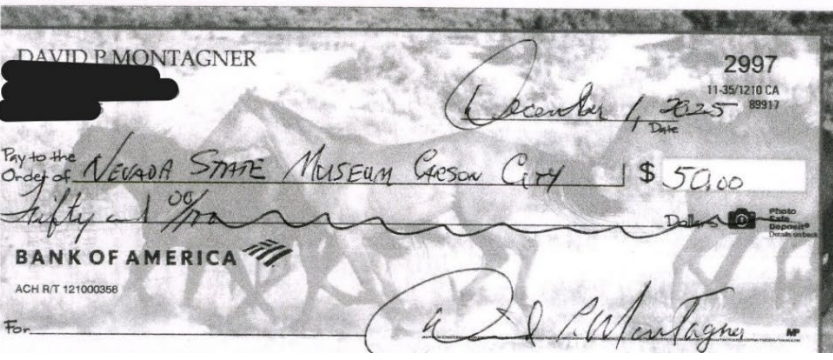 DAVID P. MONTAGNER
2997
11-35/1210 CA
89917
December 1, 2025
Date
Pay to the
Order of NEVADA STATE MUSEUM CARSON CITY $ 50.00
Fifty and 00/100 Dollars
Photo
Safe
Deposit®
Details on back
BANK OF AMERICA
ACH R/T 121000358
For
David P. Montagner
MP